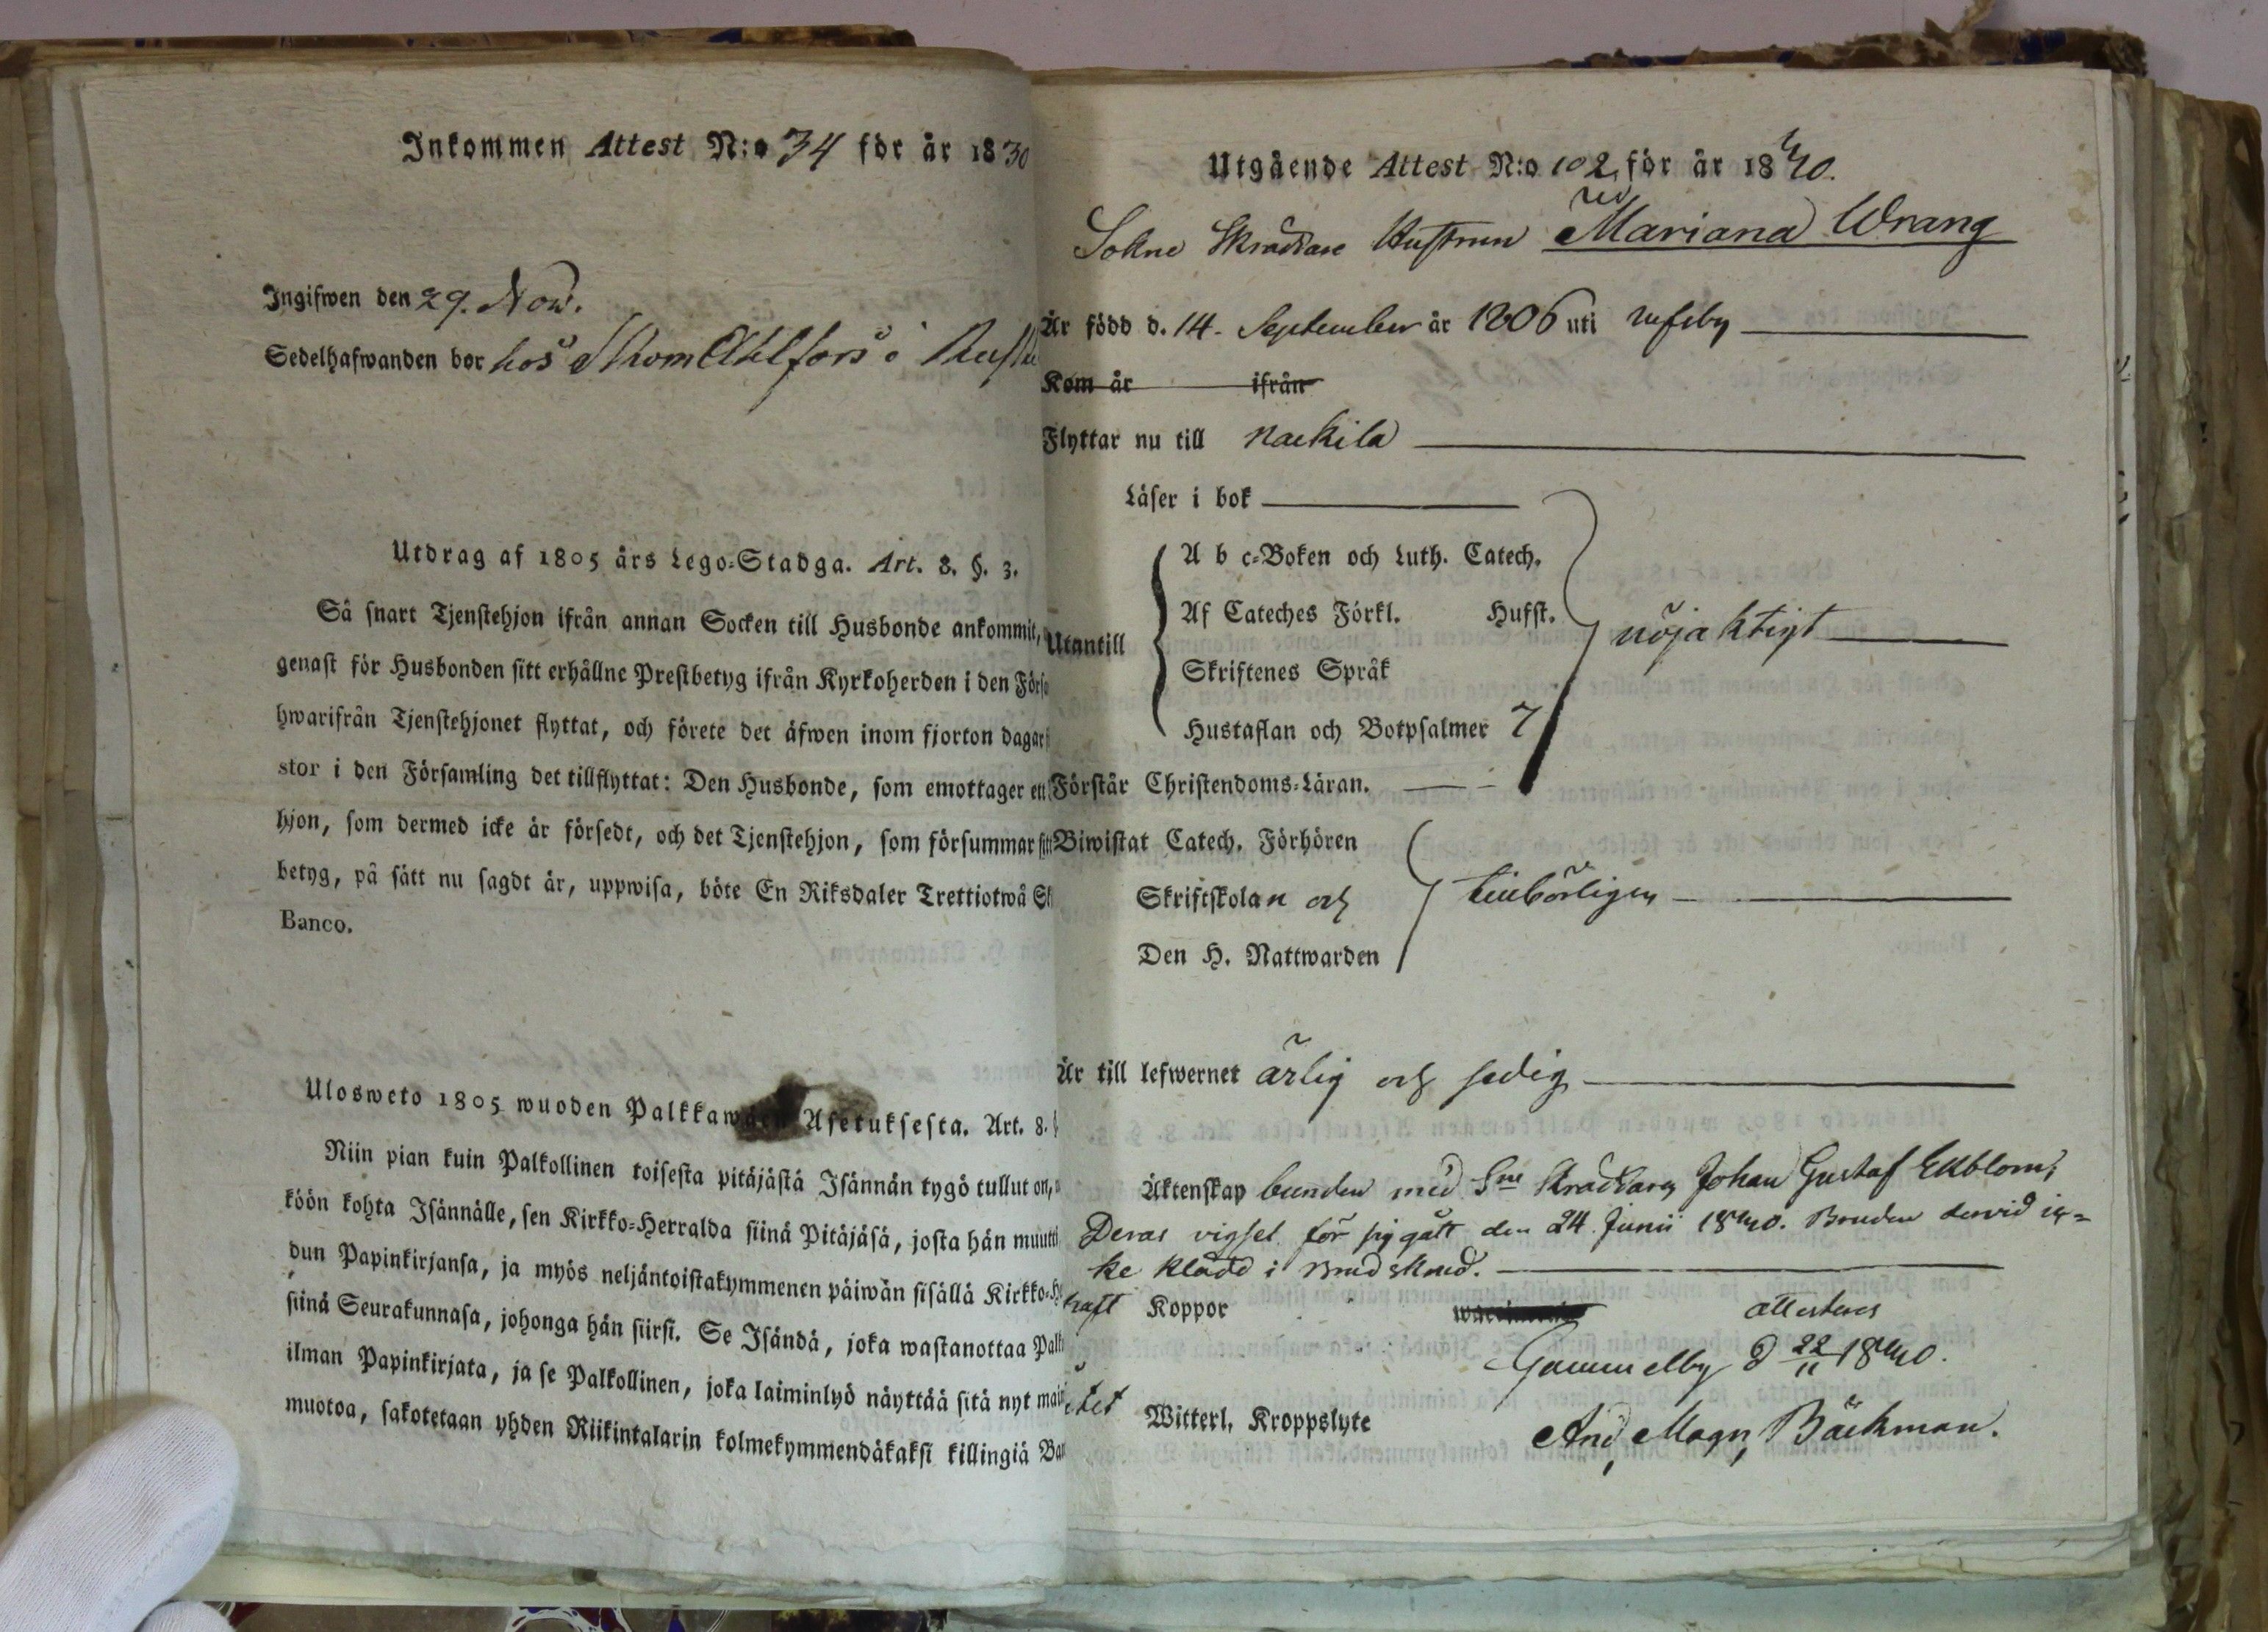 Inkommen Attest N:o 34 för år 1830
Ingifwen den 29. Now.
Sedelhafwanden bor hos Ahlfors i
Utdrag af 1805 års Lego-Stadga. Art. 8. §. 3.
Så snart Tjenstehjon ifrån annan Socken till Husbonde ankommit,
genast för Husbonden sitt erhållne Prestbetyg ifrån Kyrkoherden i den
hwarifrån Tjenstehjonet flyttat, och förete det äfwen inom fjorton dagar
stor i den Församling det tillflyttat: Den Husbonde, som emottager ett
hjon, som dermed icke är försedt, och det Tjenstehjon, som försummar sitt
betyg, på sätt nu sagdt är, uppwisa, böte En Riksdaler Trettiotwå
Banco.
Ulosweto 1805 wuoden Palkkawäen Asetuksesta. Art. 8.
Niin pian kuin Palkollinen toisesta pitäjästä Isännän tygö tullut on,
köön kohta Isännälle, sen Kirkko-Herralda siinä Pitäjäsä, josta hän
dun Papinkirjansa, ja myös neljäntoistakymmenen päiwän sisällä Kirkko-
siinä Seurakunnasa, johonga hän siirsi. Se Isändä, joka wastanottaa
ilman Papinkirjata, ja se Palkollinen, joka laiminlyö näyttää sitä nyt
muotoa, sakotetaan yhden Riikintalarin kolmekymmendäkaksi killingiä
Utgående Attest N:o 102 för år 1840.
Sokne Skräddare Hustrun Mariana Wrang
Är född d. 14. September år 1806 uti Ulfsby
Kom år ifrån
Flyttar nu till Nackila
Läser i bok
Utantill
A b c-Boken och Luth. Catech.
Af Cateches Förkl. Hufst.
Skriftenes Språk
Hustaflan och Botpsalmer 7
nöjaktigt
Förstår Christendoms-Läran.
Biwistat Catech. Förhören
Skriftskolan och
Den H. Nattwarden
tillbörligen
Är till lefwernet ärlig och sedig
Äktenskap bunden med Sne Skräddaren Johan Gustaf Ekblom;
Deras vigsel för sig gått den 24 Junii 1840. Bruden dervid ic=
ke klädd i Brudskrud.
haft Koppor attesteras
Gammelby d 22/11 1840.
Witterl. Kroppslyte
And, Magn, Bäckman.